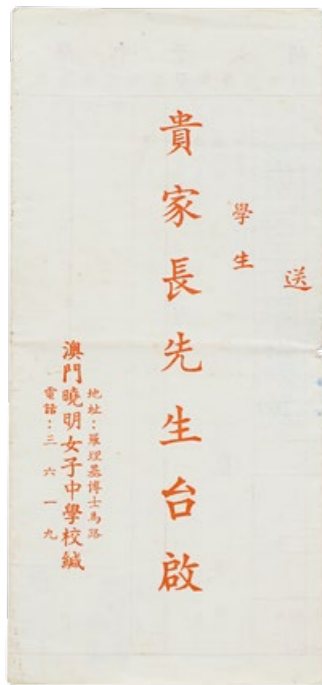 送
學生
貴家長先生台啟
地址：羅理基博士馬路
澳門曉明女子中學校緘
電話：三六一九